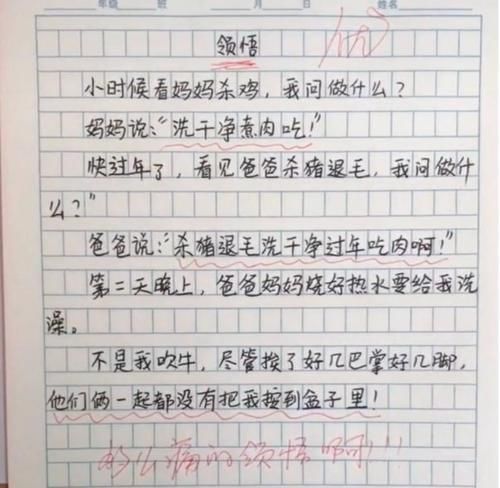 年级 班 月 日 姓名
领悟
优
小时候看妈妈杀鸡，我问做什么？
妈妈说：“洗干净煮肉吃！”
快过年了，看见爸爸杀猪退毛，我问做什
么？”
爸爸说：“杀猪退毛洗干净过年吃肉啊！”
第二天晚上，爸爸妈妈烧好热水要给我洗
澡。
不是我吹牛，尽管挨了好几巴掌好几脚，
他们俩一起都没有把我按到盆子里！
多么痛的领悟啊！！！